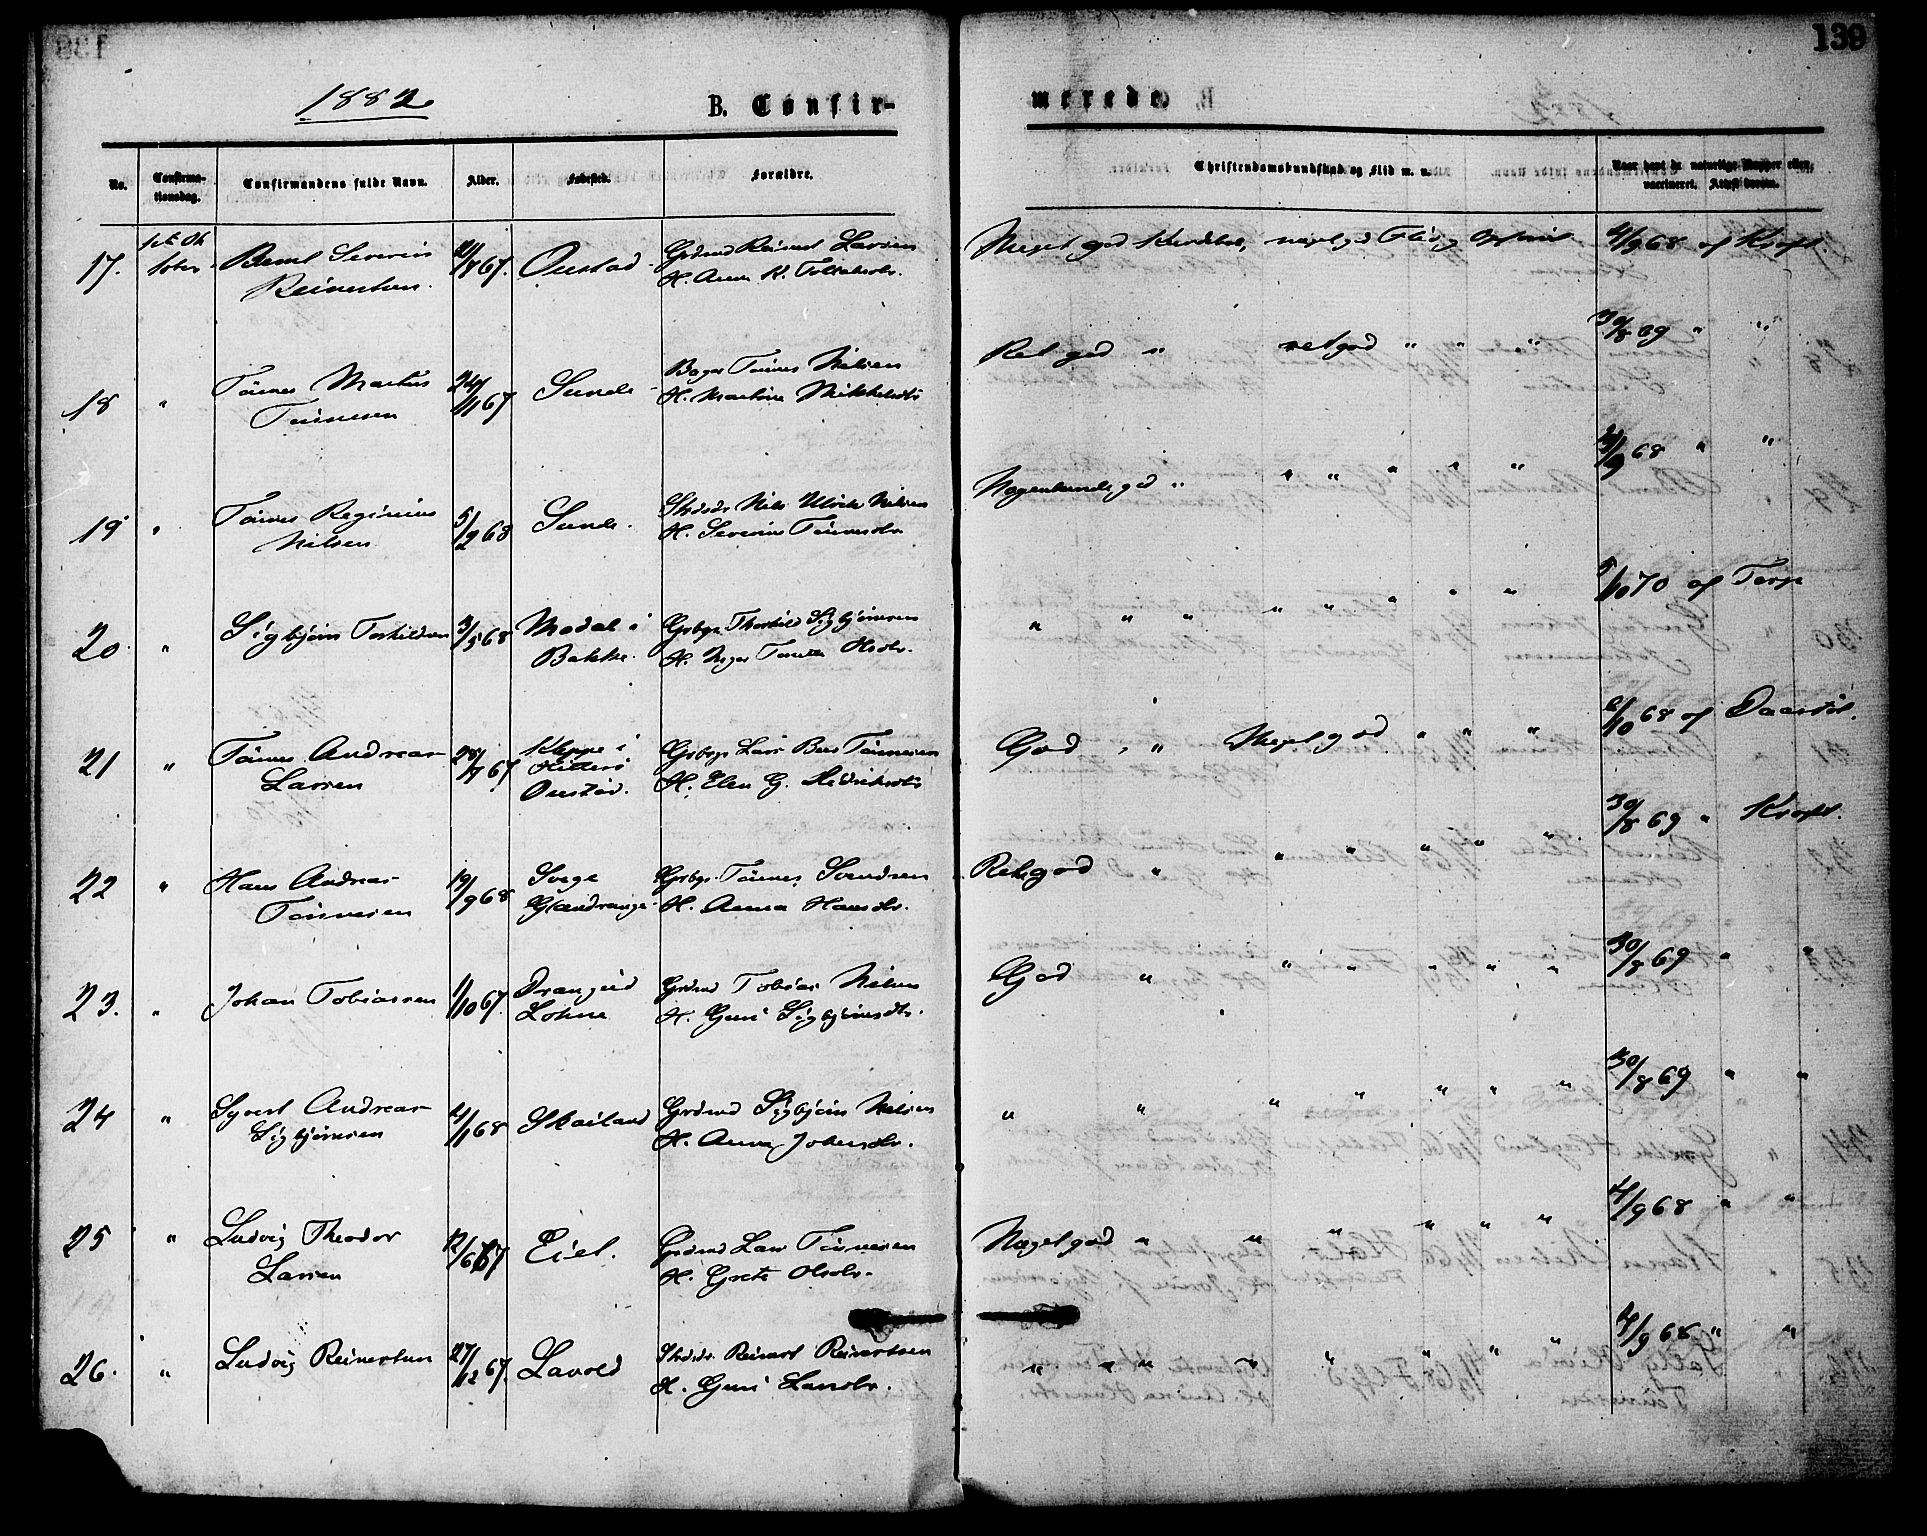 139
1882
B. Confir-
merede.
No.
Confirma-
tionsdag.
Confirmandens fulde Navn.
Alder.
Fødested.
Forældre.
Christendomskundskab og Flid m. m.
Naar havt de naturlige Kopper eller,
vaccineret, Attest derom.
17. 1ste Ok
tober Bernt Severin
Reinertsen. 21/8 67. Oustad Grdmd Reinert Larsen
H. Anna K. Meget god Kundskab, meget god Flid og Opførsel 4/9 68 af Kraft.
18 " Tönnes Martin
Tönnesen 24/11 67 Sunde Bager Tönnes Nilsen
H. Martine Mikkelsdtr Ret god " retgod " " " 30/8 69 " "
19 " Tönnes Reginius
Nilsen 5/2 68 Sunde. Nils Ulrik Nilsen
H. Severine Tönnesdtr Nogenlunde god " " " " " " /9 68 " "
20. " Sigbjörn Torkildsen 3/5 68 Modal i
Bakke. Grbgr Thorkild Sigbjörnsen
H. Inger Olsdtr. " " " " " " " " 5/10 70 af Torp
21 " Tönnes Andreas
Larsen 28/7 67 Kleppe i
Hitterö
Oustad. Grbgr Lars Tönnesen
H. Elen G. God " " Meget god " " " /10 68 af
22 " Hans Andreas
Tönnesen 19/9 68 Svege
Glendrange Grbgr. Tönnes Svendsen
H. Anna Hansdtr. Ret god " " " " " " 30/8 69 " Kraft.
23. " Johan Tobiassen 1/10 67. Drangeid
Lohne Grdmd Tobias Nilsen
H. Guri Sigbjörnsdtr. God " " " " " " 30/8 69 " "
24 " Syvert Andreas
Sigbjörnsen 4/1 68 Skailand Grdmd Sigbjörn Nilsen
H. Anna Johnsdtr. " " " " " " " 30/8 69 " "
25 " Ludvig Theodor
Larsen 12/6 67 Eiet. Grdmd Lars Tönnesen
H. Grete Olsdtr. Meget god " " " " " " 4/9 68 " "
26. " Ludvig Reinertsen 27/12 67. Lavold Reinert Reinertsen
H. Guri Larsdtr. " " " " " " " " 4/9 68 " "